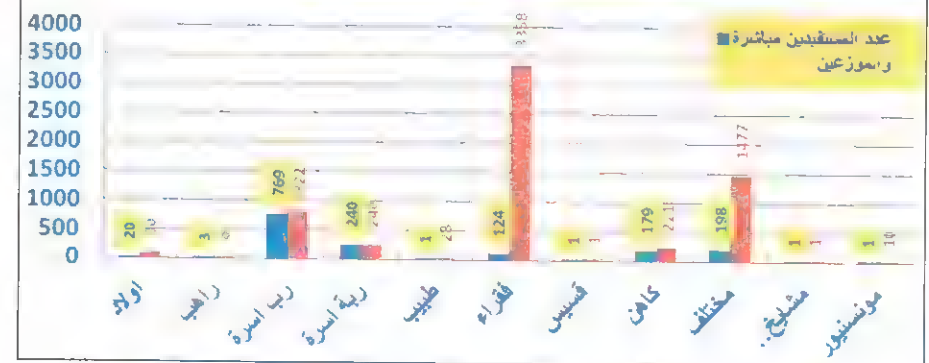 4000
3500
3000
2500
2000
1500
1000
500
0
عدد المستفيدين مباشرة
والموزعين
20
3
769
240
1
124
3358
1
179
198
1477
1
1
28
1
1
10
اولاد
راهب
رب اسرة
ربة اسرة
طبيب
فقراء
قسيس
كاهن
مختلف
مشايخ..
مونسنيور